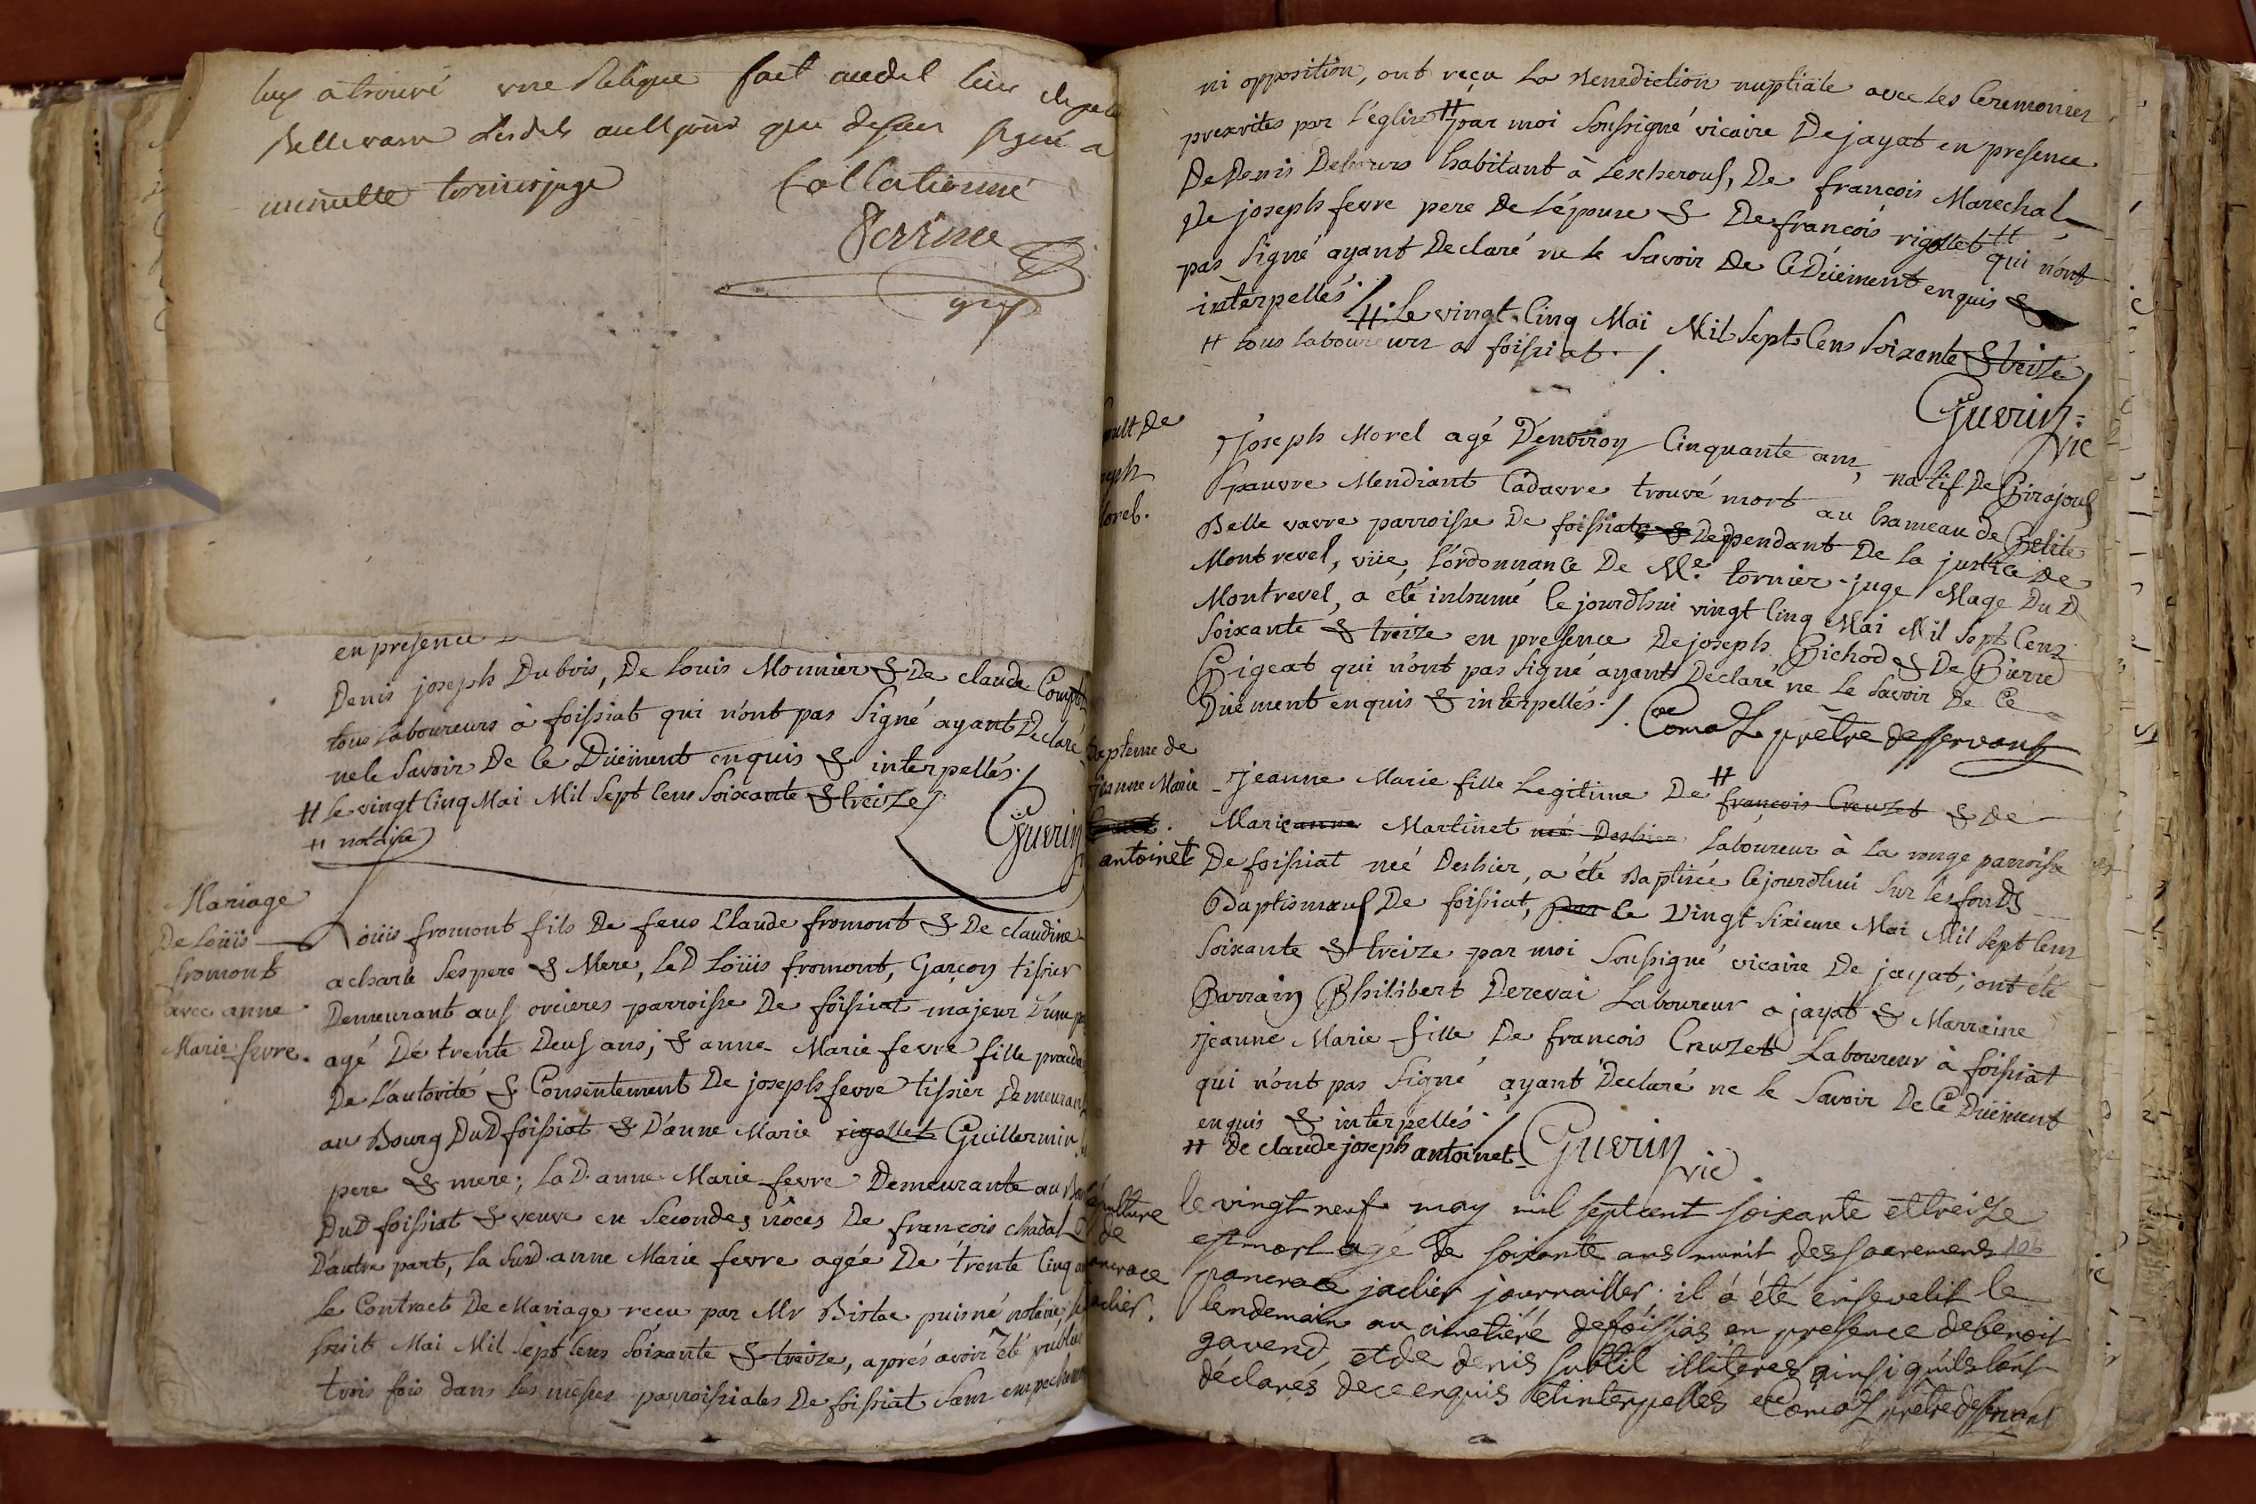 luy a trouvé une Relique fait audit lieu de petit
Bellevavre lesdits au et jour que dessus signé a
minutte tornier juge Collationné
Perrine
en presence
Denis joseph Dubois, De louis Monnier & De claude
tous laboureurs à foissiat qui n'ont pas signé ayant Declaré
ne le savoir De Ce Düëment enquis & interpellés ./
# le vingt Cinq Mai Mil sept Cens soixante & treize /.
# notaire
Guerin
Mariage
De Loüis
fromont
avec anne
Marie fevre.
Loüis fromont fils De feus Claude fromont & De claudine
acharle ses pere & Mere, Le D Loüis fromont, Garçon tissier
Demeurant aus orcieres parroisse De foissiat majeur D'une
agé De trente Deus ans; & anne Marie fevre fille procéda
De L'autorité & Consentement De joseph fevre tissier Demeurant
au Bourg Dud foissiat & D'anne Marie rigollet Guillermin
pere & mere; La D. anne Marie fevre Demeurante au
Dud foissiat & veuve en secondes nôces De françois chadal
D'autre part, la susd. anne Marie fevre agée De trente Cinq
Le Contract De Mariage reçu par Mr puisné notaire,
huit Mai Mil sept Cens soixante & treize, aprés avoir été publié
trois fois dans les messes parroissiales De foissiat sans
ni opposition, ont reçu la Benediction nuptiale avec les Ceremonies
prexrites par l'église # par moi soussigné vicaire De jayat en presence
De Denis habitant à Lescherous, De françois Marechal
De joseph fevre pere De L'épouse & De françois rigollet # qui n'ont
pas signé ayant Declaré ne le savoir De Ce Düëment enquis &
interpellés ./ # Le vingt Cinq Mai Mil sept Cens soixante & treize /
# tous laboureurs a foissiat ./.
Guerin
vic
De
joseph Morel agé D'environ Cinquante ans, natif De Pirajous
pauvre Mendiant Cadavre trouvé mort au hameau de Petite
Belle vavre parroisse De foissiat & Deppendant De la justice De
Montrevel, vüe, L'ordonnance De Me. tornier juge Mage Du D
Montrevel, a été inhumé le jourdhui vingt Cinq Mai Mil sept Cens
soixante & treize en presence De joseph Pichod & De Pierre
Pigeat qui n'ont pas signé ayant Declaré ne le savoir De Ce
Düëment enquis & interpellés ./. prêtre desservant
Bapteme de
jeanne Marie
antoinet
jeanne Marie fille Legitime De # françois Creuzet & De
Marieanne Martinet neé Desbier Laboureur à la rouge parroisse
De foissiat neé Desbier, a été Baptisée le jourdhui sur les fonds
Baptismaus De foissiat, par Ce Vingt sixieme Mai Mil sept Cens
soixante & treize par moi soussigné vicaire De jayat, ont été
Parrain Philibert Derevai Laboureur a jayat & Marraine
jeanne Marie fille De françois Creuzet Laboureur à foissiat
qui n'ont pas signé ayant Declaré ne le savoir De Ce Düëment
enquis & interpellés ./
# De claude joseph antoinet
Guerin
vic
de
le vingt neuf may mil sept cent soixante et treize
est mort agé de soixante ans munit des sacrements
pancrace jaclier journaillier. il á été ensevelit le
lendemain au cimetiére de foissias en presence de benoit
gavend et de denis subtil illiteres ainsi quils l'ont
déclarés de ce enquis et interpellés prêtre desservant